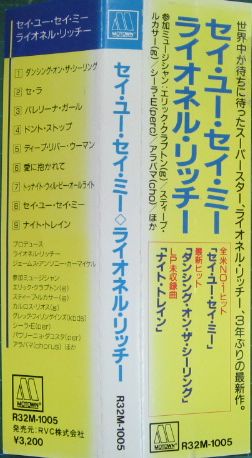 MOTOWN
セイ・ユー・セイ・ミー
ライオネル・リッチー
1 ダンシング・オン・ザ・シーリング
2 セ・ラ
3 バレリーナ・ガール
4 ドント・ストップ
5 ディープ・リバー・ウーマン
6 愛に抱かれて
7 トゥナイト・ウィル・ビー・オールライト
8 セイ・ユー・セイ・ミー
9 ナイト・トレイン
プロデュース
ライオネル・リッチー
ジェームス・アンソニー・カーマイケル
参加ミュージシャン
エリック・クラプトン(g)
スティーブ・ルカサー(g)
カルロス・リオス(g)
グレッグ・フィリンゲインズ(kbds)
シーラ・E(per)
パウリーニョ・ダ・コスタ(per)
アラバマ(chorus) ほか
R32M-1005
発売元:RVC株式会社
¥3,200
MOTOWN
セイ・ユー・セイ・ミー◇ライオネル・リッチー
R32M-1005
世界中が待ちに待ったスーパースター、ライオネル・リッチー、3年ぶりの最新作。
セイ・ユー・セイ・ミー
ライオネル・リッチー
参加ミュージシャン:エリック・クラプトン(g)/スティーブ・
ルカサー(g)/シーラ・E(perc)/アラバマ(cho)/ほか
全米NO.1ヒット
「セイ・ユー・セイ・ミー」
最新ヒット
「ダンシング・オン・ザ・シーリング」
LP未収録曲
「ナイト・トレイン」
MOTOWN
R32M-1005